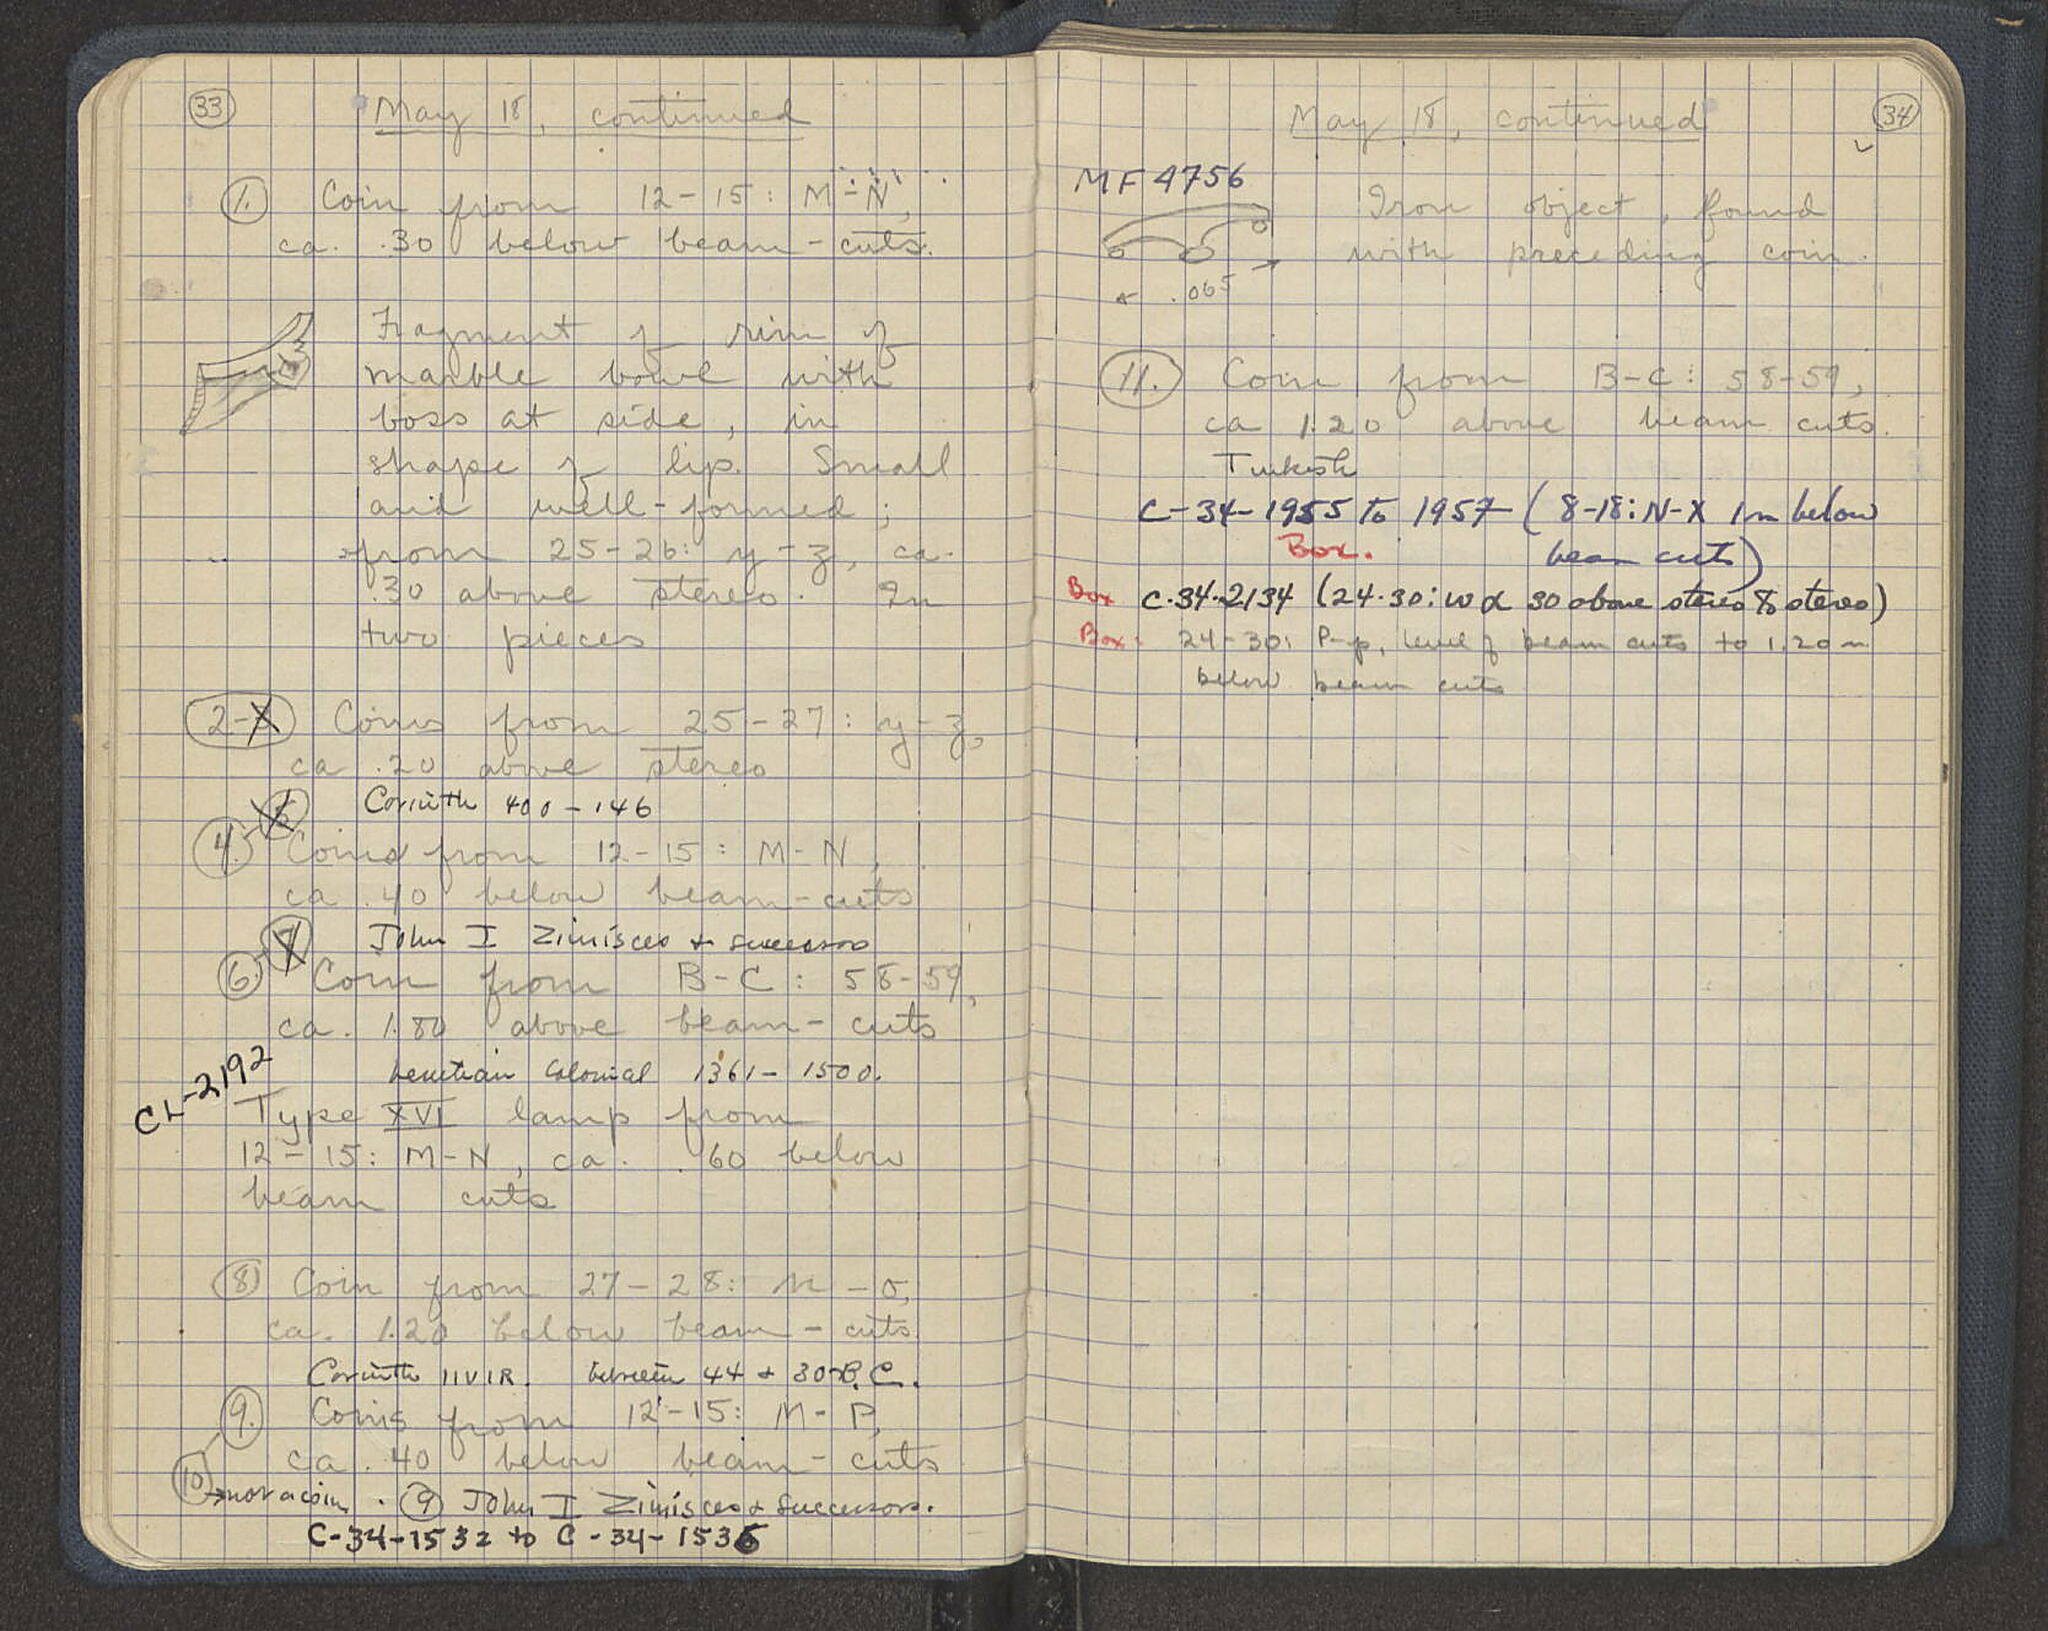 33
May 18, continued
1. Coin from 12-15: M-N,
ca. .30 below beam-cuts.
Fragment of rim of
marble bowl with
boss at side, in
shape of lip. Small
and well-formed;
from 25-26: y-z, ca.
.30 above stereo. In
two pieces
2-X Coins from 25-27: y-z,
ca .20 above stereo
Corinth 400-146
4.-5 Coins from 12-15: M-N,
ca .40 below beam-cuts
John I Zimisces & successors
6.-7 Coin from B-C: 58-59,
ca. 1.80 above beam-cuts
Venetian Colonial 1361-1500.
CL-2192
Type XVI lamp from
12-15: M-N, ca. .60 below
beam cuts
8) Coin from 27-28: n-o,
ca. 1.20 below beam-cuts
Corinth IIVIR. between 44 & 30 B.C.
9. Coins from 12-15: M-P,
ca .40 below beam-cuts
10 → not a coin. 9 John I Zimisces & Successors.
C-34-1532 to C-34-1536
May 18, continued
34
MF 4756
Iron object, found
with preceding coin.
← .065 →
11. Coin from B-C: 58-59,
ca 1.20 above beam cuts.
Turkish
C-34-1955 to 1957 (8-18: N-X 1m below
Box. beam cuts)
Box C-34-2134 (24-30: w α 30 above stereo to stereo)
Box: 24-30: P-p, level of beam cuts to 1.20 m
below beam cuts